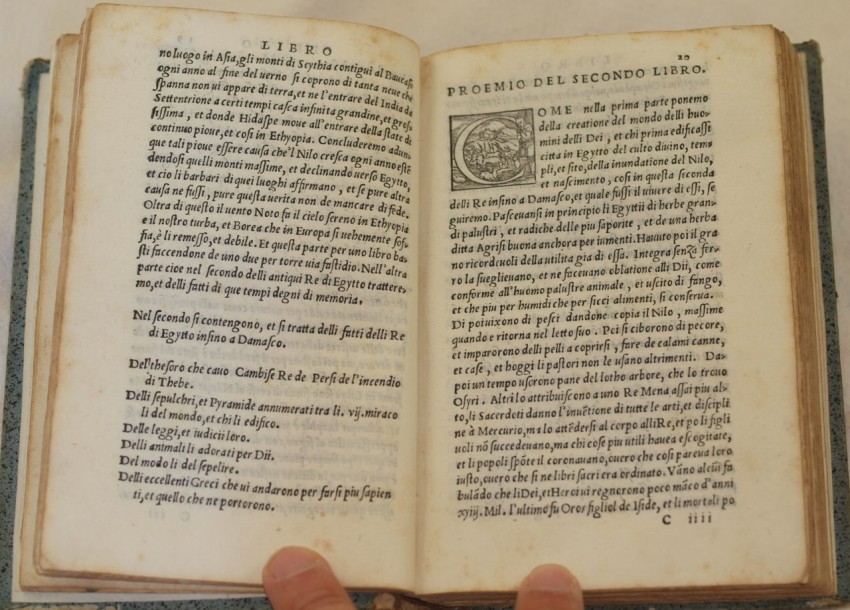 LIBRO
no luogo in Asia, gli monti di Scythia contigui al Baucaso
ogni anno al fine del uerno si coprono di tanta neue che
spanna non ui appare di terra, et ne l'entrare del India da
Settentrione a certi tempi casca infinita grandine, et gros
sissima, et donde Hidaspe moue all'entrare della state di
continuo pioue, et cosi in Ethyopia. Concluderemo adun-
que tali pioue essere causa che'l Nilo cresca ogni anno estē
dendosi quelli monti massime, et declinando uerso Egytto,
et cio li barbari di quei luoghi affirmano, et se pure altra
causa ne fussi, pure questa uerita non de mancare di fede.
Oltra di questo il uento Noto fa il cielo sereno in Ethyopia
e il nostro turba, et Borea che in Europa si uehemente sof-
fia, è li remesso, et debile. Et questa parte per uno libro ba-
sti faccendone de uno due per torre uia fastidio. Nell'altra
parte cioe nel secondo delli antiqui Re di Egytto trattere-
mo, et delli fatti di que tempi degni di memoria.
Nel secondo si contengono, et si tratta delli fatti delli Re
di Egytto insino a Damasco.
Del thesoro che cauo Cambise Re de Persi de l'incendio
di Thebe.
Delli sepulchri, et Pyramide annumerati tra li. vij. miraco
li del mondo, et chi li edifico.
Delle leggi, et iudicii loro.
Delli animali li adorati per Dii.
Del modo li del sepelire.
Delli eccellenti Greci che ui andarono per farsi piu sapien
ti, et quello che ne portorono.
20
PROEMIO DEL SECONDO LIBRO.
COME nella prima parte ponemo
della creatione del mondo delli huo-
mini delli Dei, et chi prima edificassi
citta in Egytto del culto diuino, tem
pli, et sito, della inundatione del Nilo,
et nascimento, cosi in questa seconda
delli Re insino a Damasco, et quale fussi il uiuere di essi, se
guiremo. Pasceuansi in principio li Egyttii di herbe gran-
di palustri, et radiche delle piu saporite, et de una herba
ditta Agrosi buona anchora per iumenti. Hauuto poi il gra
no ricordeuoli della utilita gia di essa. Integra senza fer-
ro la sueglieuano, et ne faceuano oblatione alli Dii, come
conforme all'huomo palustre animale, et uscito di fango,
et che piu per humidi che per sicci alimenti, si conserua.
Di poi uixono di pesci dandone copia il Nilo, massime
quando e ritorna nel letto suo. Poi si ciborono di pecore,
et impararono delli pelli a coprirsi, fare de calami canne,
et case, et hoggi li pastori non le usano altrimenti. Da-
poi un tempo usorono pane del lotho arbore, che lo trouo
Osyri. Altri lo attribuiscono a uno Re Mena assai piu al-
to, li Sacerdoti danno l'inuētione di tutte le arti, et discipli
ne à Mercurio, ma lo attēdersi al corpo alli Re, et po li figli
uoli nō succedeuano, ma chi cose piu utili hauea escogitate,
et li popoli spōte il coronauano, ouero che cosi parea loro
iusto, ouero che si ne libri sacri era ordinato. Vāno alcūi fa
bulādo che li Dei, et Heroi ui regnerono poco māco d'anni
xviij. Mil. l'ultimo fu Oros figliol de Iside, et li mortali po
C iiii